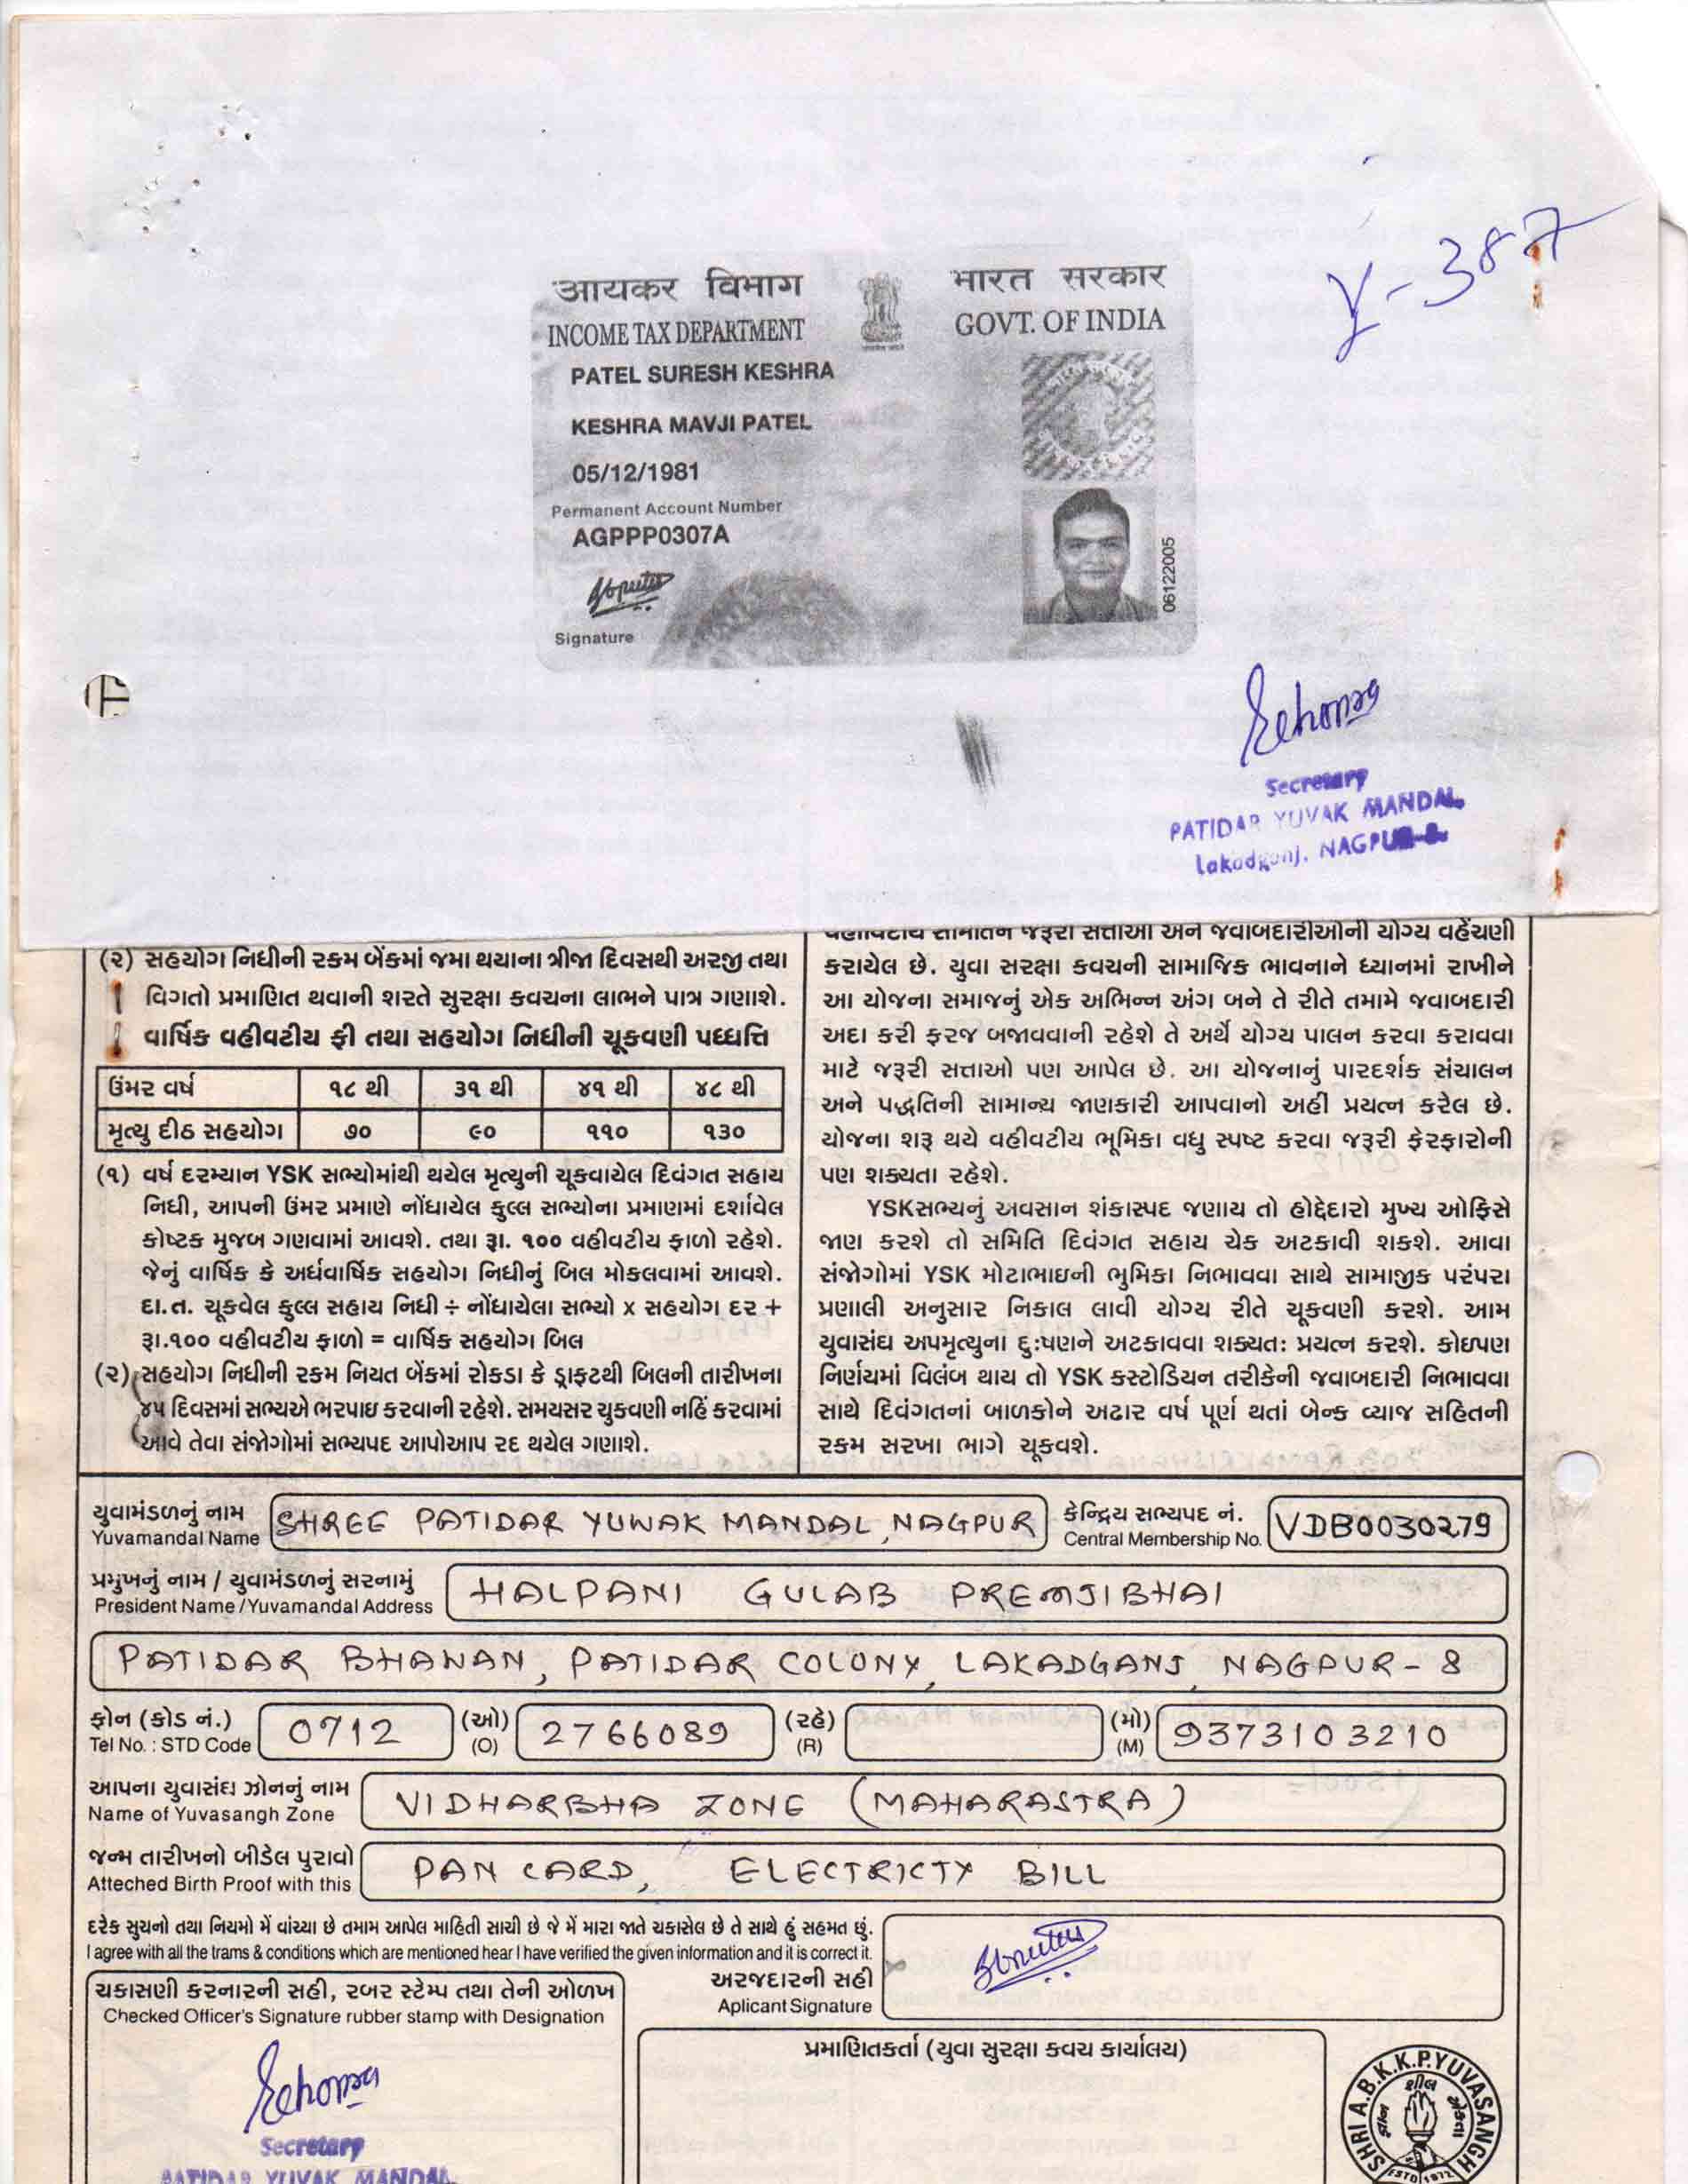 Y-387
आयकर विभाग
INCOME TAX DEPARTMENT
भारत सरकार
GOVT. OF INDIA
PATEL SURESH KESHRA
KESHRA MAVJI PATEL
05/12/1981
Permanent Account Number
AGPPP0307A
Signature
06122005
Secretary
PATIDAR YUVAK MANDAL
Lakadganj, NAGPUR-8.
(૨) સહયોગ નિધીની રકમ બેંકમાં જમા થયાના ત્રીજા દિવસથી અરજી તથા
વિગતો પ્રમાણિત થવાની શરતે સુરક્ષા કવચના લાભને પાત્ર ગણાશે.
વાર્ષિક વહીવટીય ફી તથા સહયોગ નિધીની ચૂકવણી પધ્ધતિ
ઉંમર વર્ષ ૧૮ થી ૩૧ થી ૪૧ થી ૪૮ થી
મૃત્યુ દીઠ સહયોગ ૭૦ ૯૦ ૧૧૦ ૧૩૦
(૧) વર્ષ દરમ્યાન YSK સભ્યોમાંથી થયેલ મૃત્યુની ચૂકવાયેલ દિવંગત સહાય
નિધી, આપની ઉંમર પ્રમાણે નોંધાયેલ કુલ્લ સભ્યોના પ્રમાણમાં દર્શાવેલ
કોષ્ટક મુજબ ગણવામાં આવશે. તથા રૂા. ૧૦૦ વહીવટીય ફાળો રહેશે.
જેનું વાર્ષિક કે અર્ધવાર્ષિક સહયોગ નિધીનું બિલ મોકલવામાં આવશે.
દા.ત. ચૂકવેલ કુલ્લ સહાય નિધી ÷ નોંધાયેલા સભ્યો x સહયોગ દર +
રૂા.૧૦૦ વહીવટીય ફાળો = વાર્ષિક સહયોગ બિલ
(૨) સહયોગ નિધીની રકમ નિયત બેંકમાં રોકડા કે ડ્રાફટથી બિલની તારીખના
૪૫ દિવસમાં સભ્યએ ભરપાઇ કરવાની રહેશે. સમયસર ચુકવણી નહિં કરવામાં
આવે તેવા સંજોગોમાં સભ્યપદ આપોઆપ રદ થયેલ ગણાશે.
વહીવટીય સમિતિને જરૂરી સત્તાઓ અને જવાબદારીઓની યોગ્ય વહેંચણી
કરાયેલ છે. યુવા સરક્ષા કવચની સામાજિક ભાવનાને ધ્યાનમાં રાખીને
આ યોજના સમાજનું એક અભિન્ન અંગ બને તે રીતે તમામે જવાબદારી
અદા કરી ફરજ બજાવવાની રહેશે તે અર્થે યોગ્ય પાલન કરવા કરાવવા
માટે જરૂરી સત્તાઓ પણ આપેલ છે. આ યોજનાનું પારદર્શક સંચાલન
અને પદ્ધતિની સામાન્ય જાણકારી આપવાનો અહીં પ્રયત્ન કરેલ છે.
યોજના શરૂ થયે વહીવટીય ભૂમિકા વધુ સ્પષ્ટ કરવા જરૂરી ફેરફારોની
પણ શક્યતા રહેશે.
YSKસભ્યનું અવસાન શંકાસ્પદ જણાય તો હોદ્દેદારો મુખ્ય ઓફિસે
જાણ કરશે તો સમિતિ દિવંગત સહાય ચેક અટકાવી શકશે. આવા
સંજોગોમાં YSK મોટાભાઇની ભુમિકા નિભાવવા સાથે સામાજીક પરંપરા
પ્રણાલી અનુસાર નિકાલ લાવી યોગ્ય રીતે ચૂકવણી કરશે. આમ
યુવાસંઘ અપમૃત્યુના દુઃષણને અટકાવવા શક્યતઃ પ્રયત્ન કરશે. કોઇપણ
નિર્ણયમાં વિલંબ થાય તો YSK કસ્ટોડિયન તરીકેની જવાબદારી નિભાવવા
સાથે દિવંગતનાં બાળકોને અઢાર વર્ષ પૂર્ણ થતાં બેન્ક વ્યાજ સહિતની
રકમ સરખા ભાગે ચૂકવશે.
યુવામંડળનું નામ SHREE PATIDAR YUWAK MANDAL, NAGPUR કેન્દ્રિય સભ્યપદ નં. VDB0030279
Yuvamandal Name Central Membership No.
પ્રમુખનું નામ / યુવામંડળનું સરનામું HALPANI GULAB PREMJIBHAI
President Name /Yuvamandal Address
PATIDAR BHAWAN, PATIDAR COLONY, LAKADGANJ, NAGPUR - 8
ફોન (કોડ નં.) 0712 (ઓ) 2766089 (રહે) (મો) 9373103210
Tel No. : STD Code (O) (R) (M)
આપના યુવાસંઘ ઝોનનું નામ VIDHARBHA ZONE (MAHARASTRA)
Name of Yuvasangh Zone
જન્મ તારીખનો બીડેલ પુરાવો PAN CARD, ELECTRICTY BILL
Atteched Birth Proof with this
દરેક સુચનો તથા નિયમો મેં વાંચ્યા છે તમામ આપેલ માહિતી સાચી છે જે મેં મારા જાતે ચકાસેલ છે તે સાથે હું સહમત છું.
I agree with all the trams & conditions which are mentioned hear I have verified the given information and it is correct it.
અરજદારની સહી
Aplicant Signature
ચકાસણી કરનારની સહી, રબર સ્ટેમ્પ તથા તેની ઓળખ
Checked Officer's Signature rubber stamp with Designation
પ્રમાણિતકર્તા (યુવા સુરક્ષા કવચ કાર્યાલય)
Secretary
PATIDAR YUVAK MANDAL
SHRI A.B.K.K.P.YUVASANGH
ESTD 1972